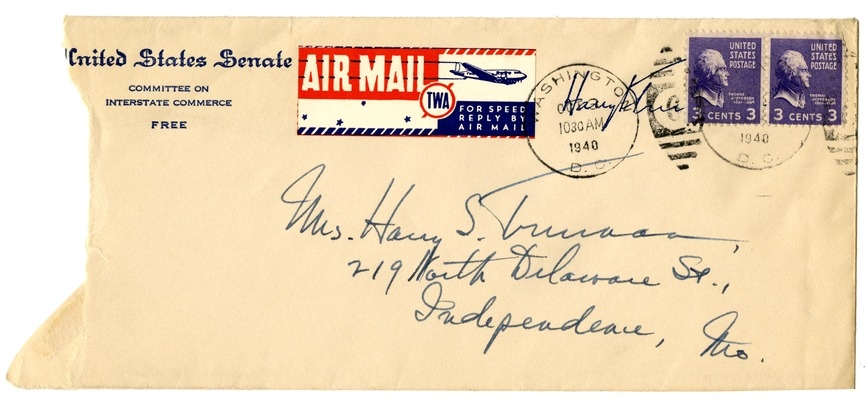 United States Senate
COMMITTEE ON
INTERSTATE COMMERCE
FREE
AIR MAIL
TWA
FOR SPEED
REPLY BY
AIR MAIL
WASHINGTON
1030 AM
1940
D. C.
Harry
UNITED
STATES
POSTAGE
THOMAS
JEFFERSON
3 CENTS 3
UNITED
STATES
POSTAGE
THOMAS
JEFFERSON
3 CENTS 3
1940
D. C.
Mrs. Harry S. Truman,
219 North Delaware St.,
Independence, Mo.